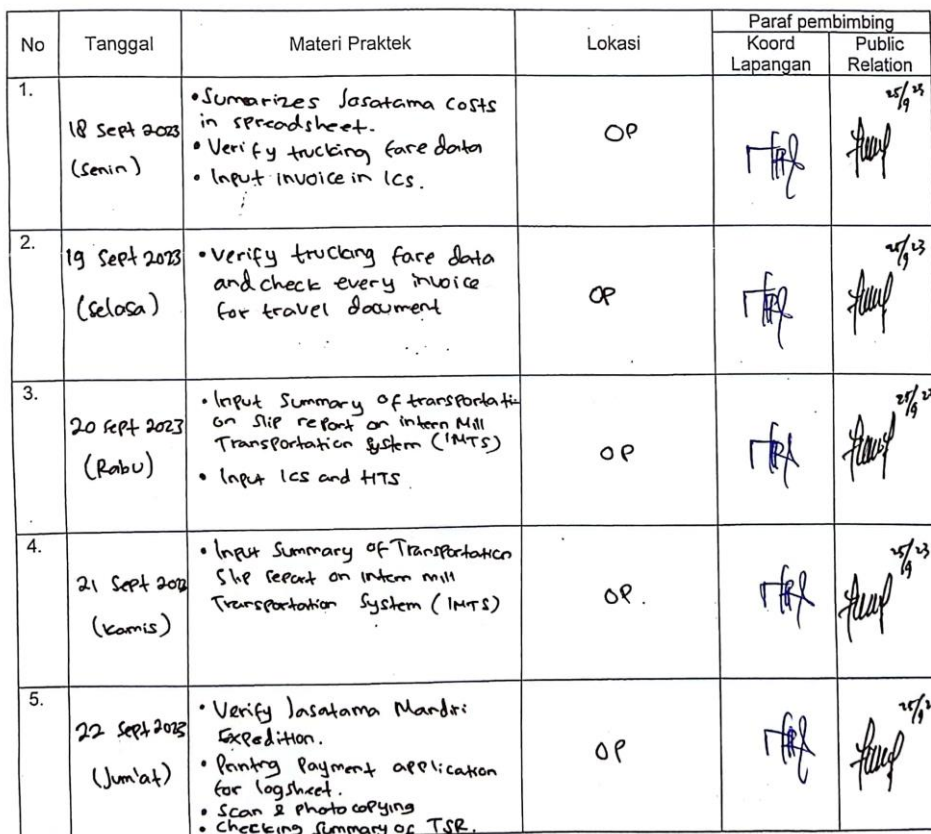 Paraf pembimbing
No Tanggal Materi Praktek Lokasi Koord Public
Lapangan Relation
1.
18 Sept 2023
(Senin)
• Sumarizes Jasatama costs
in spreadsheet.
• Verify trucking fare data
• Input invoice in ICS.
OP
25/9 23
2.
19 Sept 2023
(Selasa)
• Verify trucking fare data
and check every invoice
for travel document
OP
25/9 23
3.
20 Sept 2023
(Rabu)
• Input Summary of transportati
on Slip report on intern Mill
Transportation System (IMTS)
• Input ICS and HTS
OP
25/9
4.
21 Sept 2023
(Kamis)
• Input Summary of Transportation
Slip report on intern mill
Transportation System (IMTS)
OP.
25/9 23
5.
22 Sept 2023
(Jum'at)
• Verify Jasatama Mandiri
Expedition.
• Printng Payment application
for logsheet.
• Scan & photo copying
• Checking Summary of TSR.
OP
25/9